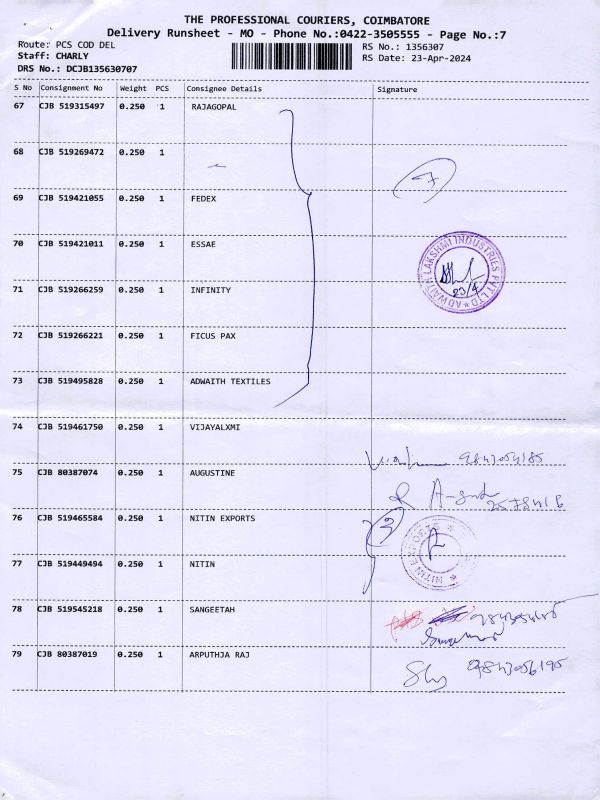 THE PROFESSIONAL COURIERS, COIMBATORE
Delivery Runsheet - MO - Phone No.:0422-3505555 - Page No.:7
Route: PCS COD DEL
RS No.: 1356307
Staff: CHARLY
RS Date: 23-Apr-2024
DRS No.: DCJB135630707
S No Consignment No Weight PCS Consignee Details Signature
67 CJB 519315497 0.250 1 RAJAGOPAL
68 CJB 519269472 0.250 1
7
69 CJB 519421055 0.250 1 FEDEX
70 CJB 519421011 0.250 1 ESSAE
ADWAITH LAKSHMI INDUSTRIES PVT LTD
23/4
71 CJB 519266259 0.250 1 INFINITY
72 CJB 519266221 0.250 1 FICUS PAX
73 CJB 519495828 0.250 1 ADWAITH TEXTILES
74 CJB 519461750 0.250 1 VIJAYALXMI
75 CJB 80387074 0.250 1 AUGUSTINE
76 CJB 519465584 0.250 1 NITIN EXPORTS
3
NITIN EXPORTS
77 CJB 519449494 0.250 1 NITIN
78 CJB 519545218 0.250 1 SANGEETAH
79 CJB 80387019 0.250 1 ARPUTHJA RAJ